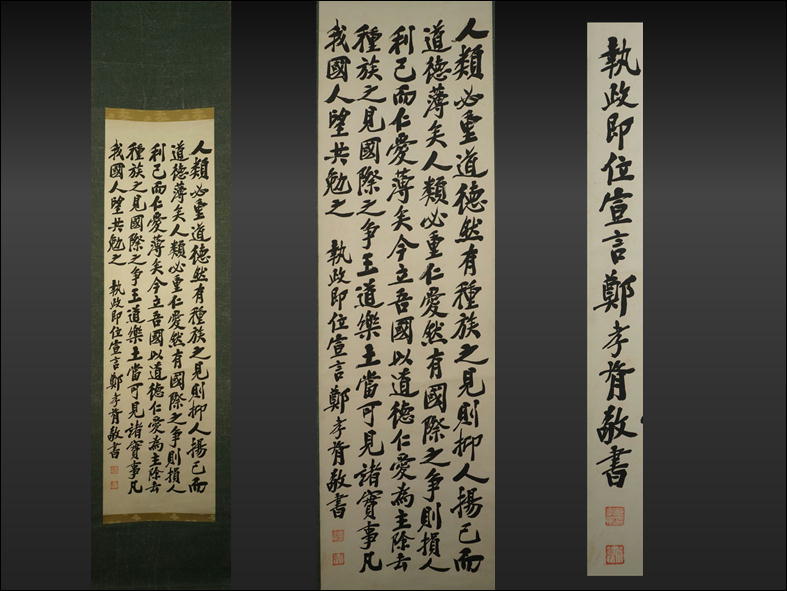 人類必重道德然有種族之見則抑人揚己而
道德薄矣人類必重仁愛然有國際之争則損人
利己而仁愛薄矣今立吾國以道德仁愛為主除去
種族之見國際之争王道樂土當可見諸實事凡
我國人望共勉之 執政即位宣言鄭孝胥敬書
人類必重道德然有種族之見則抑人揚己而
道德薄矣人類必重仁愛然有國際之争則損人
利己而仁愛薄矣今立吾國以道德仁愛為主除去
種族之見國際之争王道樂土當可見諸實事凡
我國人望共勉之 執政即位宣言鄭孝胥敬書
執政即位宣言鄭孝胥敬書